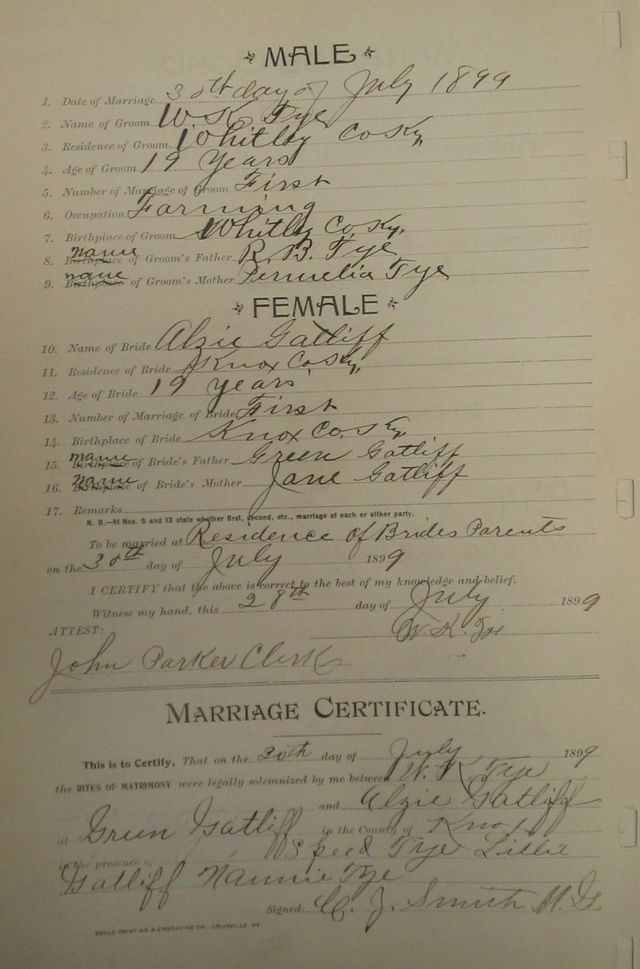 MALE
1. Date of Marriage 30th day of July 1899
2. Name of Groom W. K. Tye
3. Residence of Groom Whitley Co Ky
4. Age of Groom 19 Years
5. Number of Marriage of Groom First
6. Occupation Farming
7. Birthplace of Groom Whitley Co, Ky,
8. name Birthplace of Groom's Father R. B. Tye
9. name Birthplace of Groom's Mother Permelia Tye
FEMALE
10. Name of Bride Alzie Gatliff
11. Residence of Bride Knox Co Ky,
12. Age of Bride 19 years
13. Number of Marriage of Bride First
14. Birthplace of Bride Knox Co, Ky
15. name Birthplace of Bride's Father Green Gatliff
16. name Birthplace of Bride's Mother Jane Gatliff
17. Remarks
N. B.—At Nos. 5 and 13 state whether first, second, etc., marriage of each or either party.
To be married at Residence of Brides Parents
on the 30th day of July 1899
I CERTIFY that the above is correct to the best of my knowledge and belief.
Witness my hand, this 28th day of July 1899
ATTEST: W. K. Tye
John Parker Clerk
MARRIAGE CERTIFICATE.
This is to Certify, That on the 30th day of July 1899
the RITES OF MATRIMONY were legally solemnized by me between W. K. Tye
and Alzie Gatliff
at Green Gatliff in the County of Knox
in the presence of Speed Tye Lillie
Gatliff Nannie Tye
Signed, C. J. Smith M. G.